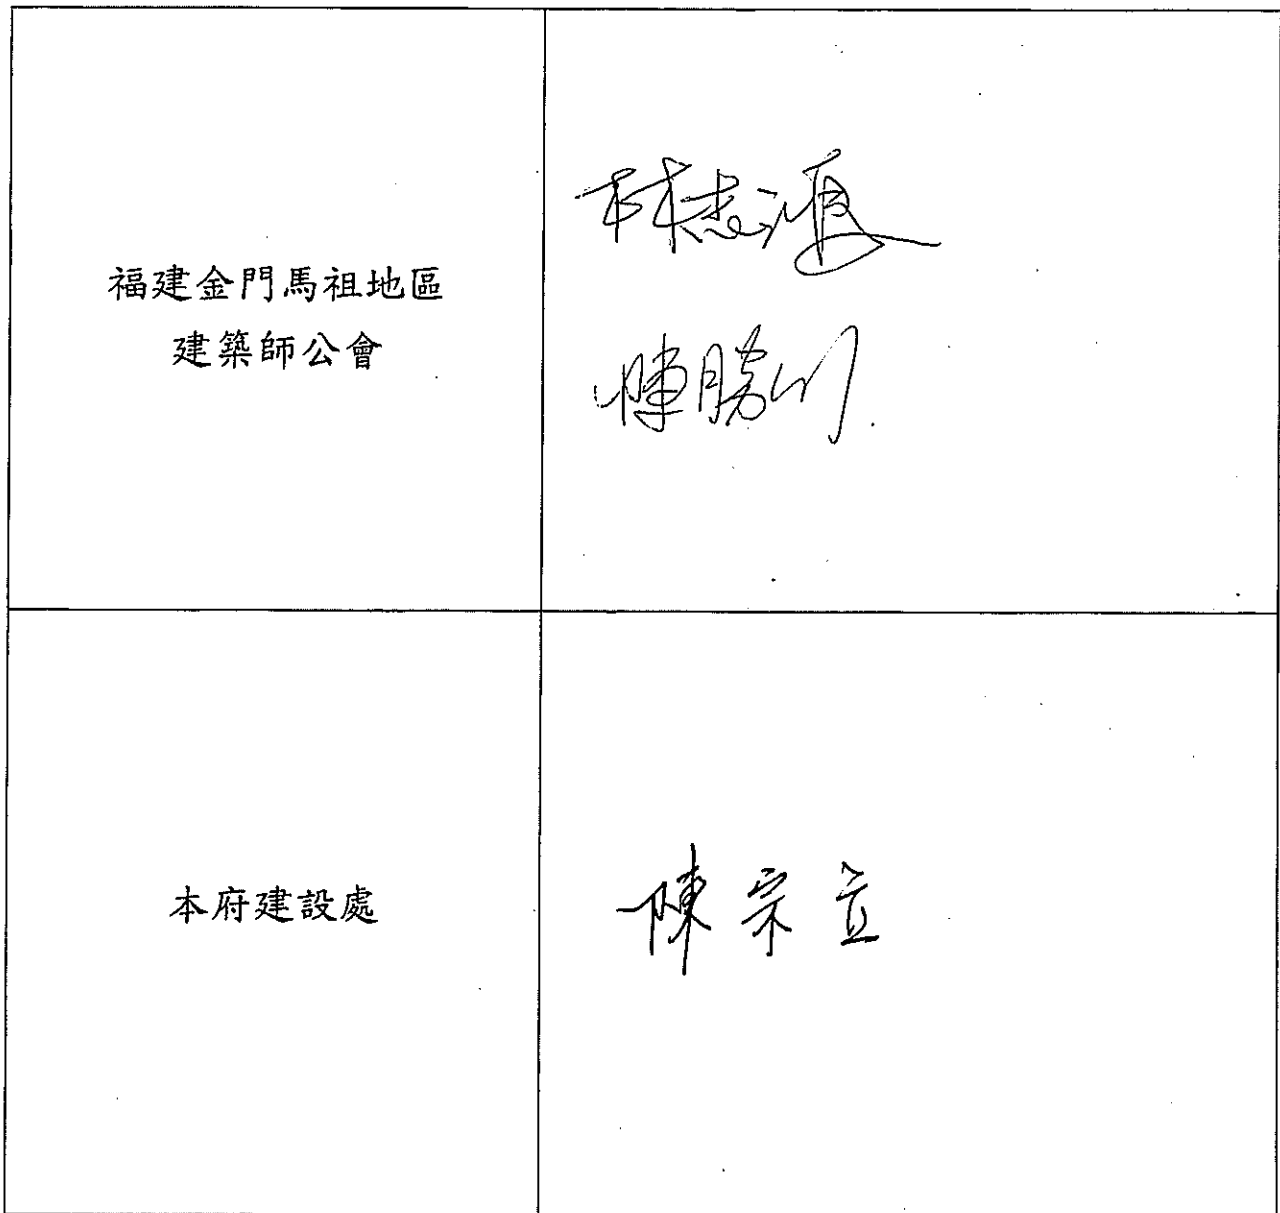 福建金門馬祖地區
建築師公會
陳勝川
本府建設處
陳宗立